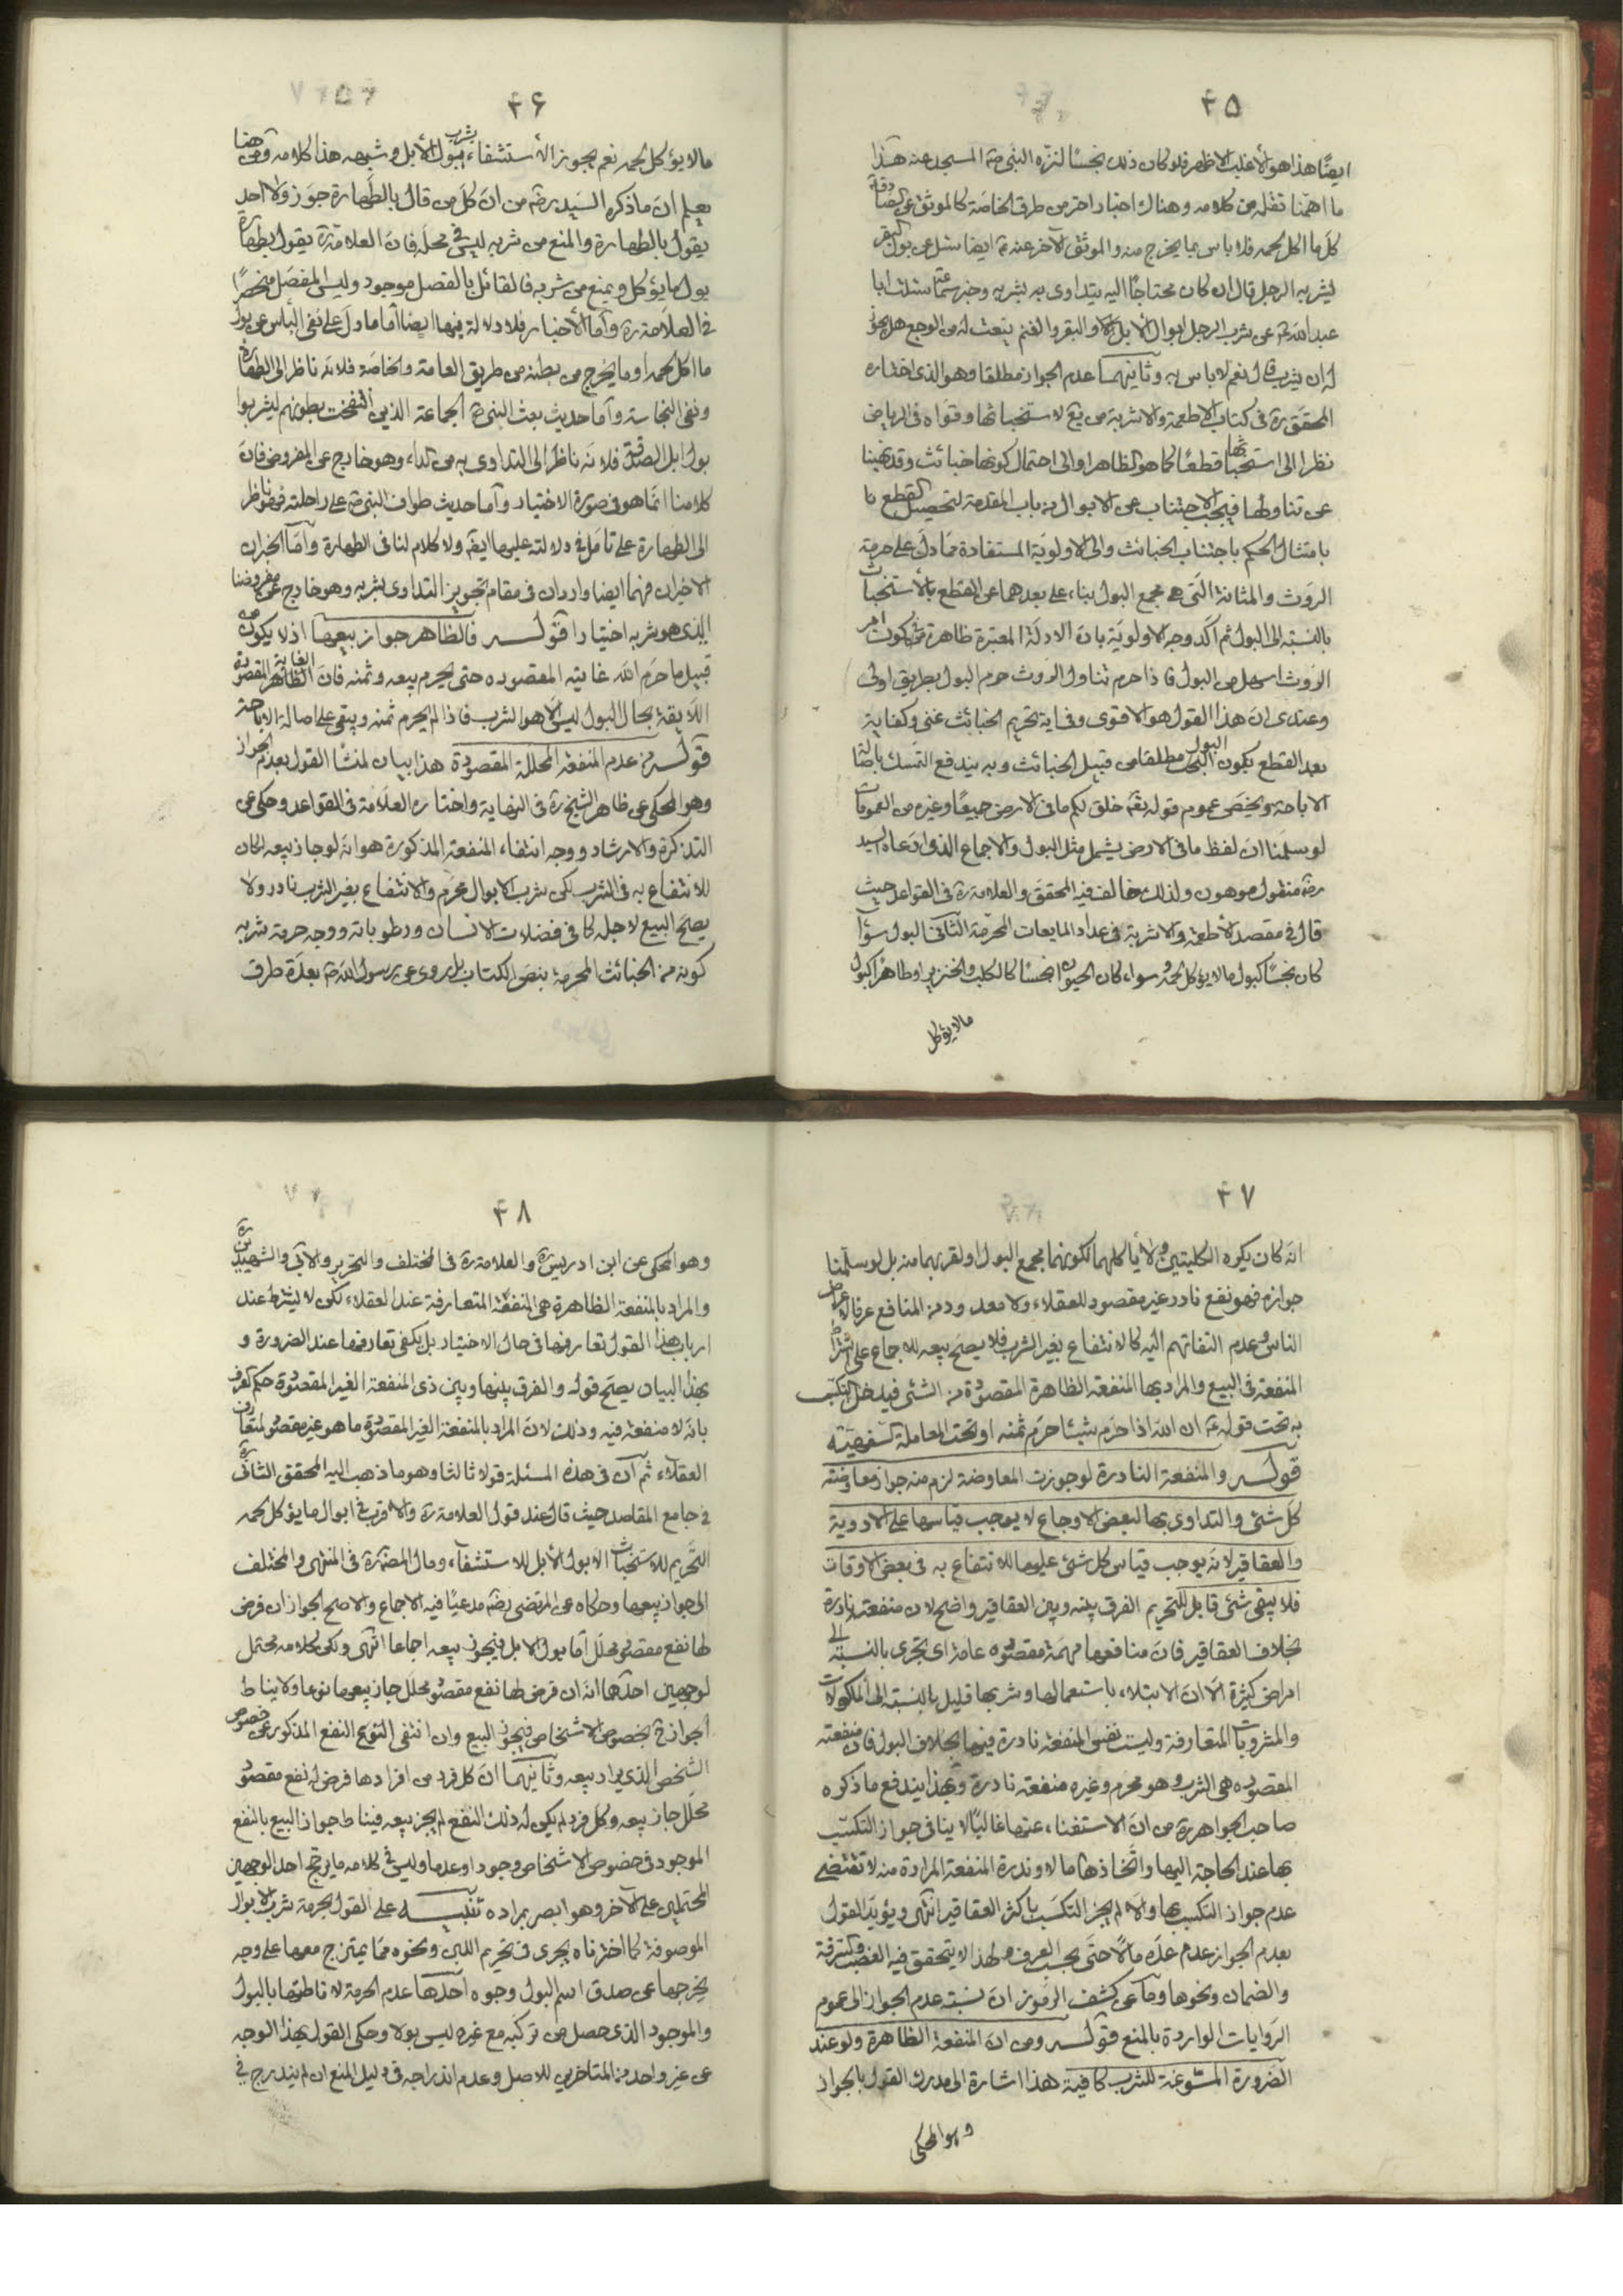 ۴۵
ايضًا هذا هو الأغلب الاظهر فلو كان ذلك نجسًا لنزّه النبى ص المسجد عنه هذا
ما اهمّنا نقله من كلامه وهناك اخبار اخر من طرق الخاصّة كالموثق عن
كل ما اكل لحمه فلا باس بما يخرج منه والموثق الآخر عنه ع ايضا سئل عن بول البقر
يشربه الرجل قال ان كان محتاجًا اليه يتداوى به يشربه وخبر سماعة سئلت ابا
عبد الله ع عن شرب الرجل ابوال الابل والبقر والغنم ينعت له من الوجع هل يجوز
له ان يشرب قال نعم لا باس به وثانيهما عدم الجواز مطلقا وهو الذى اختاره
المحقق ره فى كتاب الاطعمة والاشربة من يع لاستخباثها وقواه فى الرياض
نظرا الى استخباثها قطعًا كما هو الظاهر او الى احتمال كونها خبائث وقد نهينا
عن تناولها فيجب الاجتناب عن الابوال من باب المقدمة لتحصيل القطع
بامتثال الحكم باجتناب الخبائث والى الاولويّة المستفادة مما دل على حرمة
الروث والمثانة التى هى مجمع البول بناء على بعدهما عن القطع بالأستخباث
بالنسبة الى البول ثم اكد وجه الاولوية بان الادلة المعتبرة ظاهرة فى كون امر
الروث اسهل من البول فاذا حرم تناول الروث حرم البول بطريق اولى
وعندى ان هذا القول هو الاقوى وفى اية تحريم الخبائث غنى وكفاية
بعد القطع بكون البول مطلقا من قبيل الخبائث وبه يندفع التمسك باصالة
الاباحة ويخصّ عموم قوله تعم خلق لكم ما فى الارض جميعًا وغيره من العمومات
لو سلمنا ان لفظ ما فى الارض يشمل مثل البول والاجماع الذى ادعاه السيد
رضه منقول موهون ولذلك خالف فيه المحقق والعلامة ره فى القواعد حيث
قال فى مقصد الأطعمة والاشربة فى عداد المايعات المحرّمة الثانى البول سواء
كان نجسًا كبول ما لا يؤكل لحمه سواء كان الحيوان نجسًا كالكلب والخنزير او طاهرًا كبول
مالايؤكل
۴۶
ما لا يؤكل لحمه نعم يجوز الأستشفاء بشرب بول الأبل وشبهه هذا كلامه ومن هنا
يعلم ان ما ذكره السيد رضه من ان كل من قال بالطهارة جوّز ولا احد
يقول بالطهارة والمنع من شربه ليس فى محله فان العلامة ره يقول بطهارة
بول ما يؤكل ويمنع من شربه فالقائل بالفصل موجود وليس المفصل منحصرًا
فى العلامة ره وأما الأخبار فلا دلالة فيها ايضا أما ما دل على نفى البأس عن بول
ما اكل لحمه او ما يخرج من بطنه من طريق العامة والخاصّة فلانه ناظر الى الطهارة
ونفى النجاسة وأما حديث بعث النبى ص الجماعة الذين انتفخت بطونهم ليشربوا
بول ابل الصدقة فلانه ناظر الى التداوى به من الداء وهو خارج عن المفروض فان
كلامنا انما هو فى صورة الاختيار وأما حديث طواف النبى ص على راحلته فهو ناظر
الى الطهارة على تأمل فى دلالته عليها ايضم ولا كلام لنا فى الطهارة وأما الخبران
الاخيران فهما ايضا واردان فى مقام تجويز التداوى بشربه وهو خارج عن مفروضنا
الذى هو شربه اختيارا قوله فالظاهر جواز بيعها اذ لا يكون من
قبيل ما حرم الله غايته المقصودة حتى يحرم بيعه وثمنه فان الغاية الظاهرة المقصودة
اللايقة بحال البول ليس الا هو الشرب فاذا لم يحرم لم يحرم ثمنه ويبقى على اصالة الاباحة
قوله من عدم المنفعة المحللة المقصودة هذا بيان لمنشأ القول بعدم الجواز
وهو المحكى عن ظاهر الشيخ ره فى النهاية واختاره العلامة فى القواعد وحكى عن
التذكرة والارشاد ووجه انتفاء المنفعة المذكورة هو انه لو جاز بيعه لكان
للانتفاع به فى الشرب لكن شرب الابوال محرّم والانتفاع بغير الشرب نادر ولا
يصحّ البيع لاجله كما فى فضلات الانسان ورطوباته ووجه حرمة شربه
كونه من الخبائث المحرمة بنصّ الكتاب بل روى عن رسول الله ص بعدة طرق
۴۷
انه كان يكره الكليتين ولا يأكلهما لكونهما مجمع البول او لقربهما منه بل لو سلّمنا
جوازه فهو نفع نادر غير مقصود للعقلاء ولا معدود من المنافع عرفا لاعراض
الناس وعدم التفاتهم اليه كالانتفاع بغير الشرب فلا يصحّ بيعه للاجماع على اشتراط
المنفعة فى البيع والمراد بها المنفعة الظاهرة المقصودة من الشئ فيدخل التكسّب
به تحت قوله ع ان الله اذا حرم شيئا حرم ثمنه او تحت المعاملة السفهيّة
قوله والمنفعة النادرة لو جوزت المعاوضة لزم منه جواز معاوضة
كل شئ والتداوى بها لبعض الاوجاع لا يوجب قياسها على الادوية
والعقاقير لانه يوجب قياس كل شئ عليها للانتفاع به فى بعض الاوقات
فلا يبقى شئ قابل للتحريم الفرق بينه وبين العقاقير واضح لان منفعته نادرة
بخلاف العقاقير فان منافعها مهمّة مقصودة عامة اى تجرى بالنسبة الى
امراض كثيرة الّا ان الابتلاء باستعمالها وشربها قليل بالنسبة الى المأكولات
والمشروبات المتعارفة وليست نفس المنفعة نادرة فيها بخلاف البول فان منفعته
المقصوده هى الشرب وهو محرم وغيره منفعة نادرة وبهذا يندفع ما ذكره
صاحب الجواهر ره من ان الاستغناء عنها غالبًا لا ينافى جواز التكسّب
بها عند الحاجة اليها واتخاذها مالا وندرة المنفعة المرادة منه لا تقتضى
عدم جواز التكسب بها والا لم يجز التكسّب باكثر العقاقير انتهى ويؤيد القول
بعدم الجواز عدم عدّه مالًا حتى بحسب العرف ولهذا لا يتحقق فيه الغصب والسرقة
والضمان ونحوها وما عن كشف الرموز ان نسبة عدم الجواز الى عموم
الروايات الواردة بالمنع قوله ومن ان المنفعة الظاهرة ولو عند
الضرورة المسّوغة للشرب كافية هذا اشارة الى مدرك القول بالجواز
وهو المحكى
۴۸
وهو المحكى عن ابن ادريس ره والعلامة ره فى المختلف والتحرير والآبى والشهيدين ره
والمراد بالمنفعة الظاهرة هى المنفعة المتعارفة عند العقلاء لكن لا يشترط عند
ارباب هذا القول تعارفها فى حال الاختيار بل يكفى تعارفها عند الضرورة و
بهذا البيان يصحّ قوله والفرق بينها وبين ذى المنفعة الغير المقصودة حكم العرف
بانه لا منفعة فيه وذلك لان المراد بالمنفعة الغير المقصودة ما هو غير مقصود لمتعارف
العقلاء ثم ان فى هذه المسئلة قولا ثالثا وهو ما ذهب اليه المحقق الثانى ره
فى جامع المقاصد حيث قال عند قول العلامة ره والاقرب فى ابوال ما يؤكل لحمه
التّحريم للاستخباث الا بول الأبل للاستشفاء ومال المصنف ره فى المنتهى والمختلف
الى جواز بيعها وحكاه عن المرتضى رضه مدعيًا فيه الاجماع والاصح الجواز ان فرض
لها نفع مقصود محلل أما بول الابل فيجوز بيعه اجماعا انتهى ولكن كلامه محتمل
لوجهين احدهما انه ان فرض لها نفع مقصود محلل جاز بيعها نوعا ولا يناط
الجواز ح بخصوص الاشخاص فيجوز البيع وان انتفى النفع المذكور عن خصوص
الشخص الذى يراد بيعه وثانيهما ان كل فرد من افرادها فرض له نفع مقصود
محلل جاز بيعه وكل فرد لم يكن له ذلك النفع لم يجز بيعه فيناط جواز البيع بالنفع
الموجود فى خصوص الاشخاص وجودا وعدما وليس فى كلامه ما يرجّح احد الوجهين
المحتملين على الآخر وهو ابصر بمراده تنبيه على القول بحرمة شرب الابوال
الموصوفة كما اخترناه يجرى فى تحريم اللبن ونحوه مما يمتزج معها على وجه
يخرجها عن صدق اسم البول وجوه احدها عدم الحرمة لاناطتها بالبول
والموجود الذى حصل من تركبه مع غيره ليس بولا وحكى القول بهذا الوجه
عن غير واحد من المتاخرين للاصل وعدم اندراجه فى دليل المنع ان لم يندرج فى